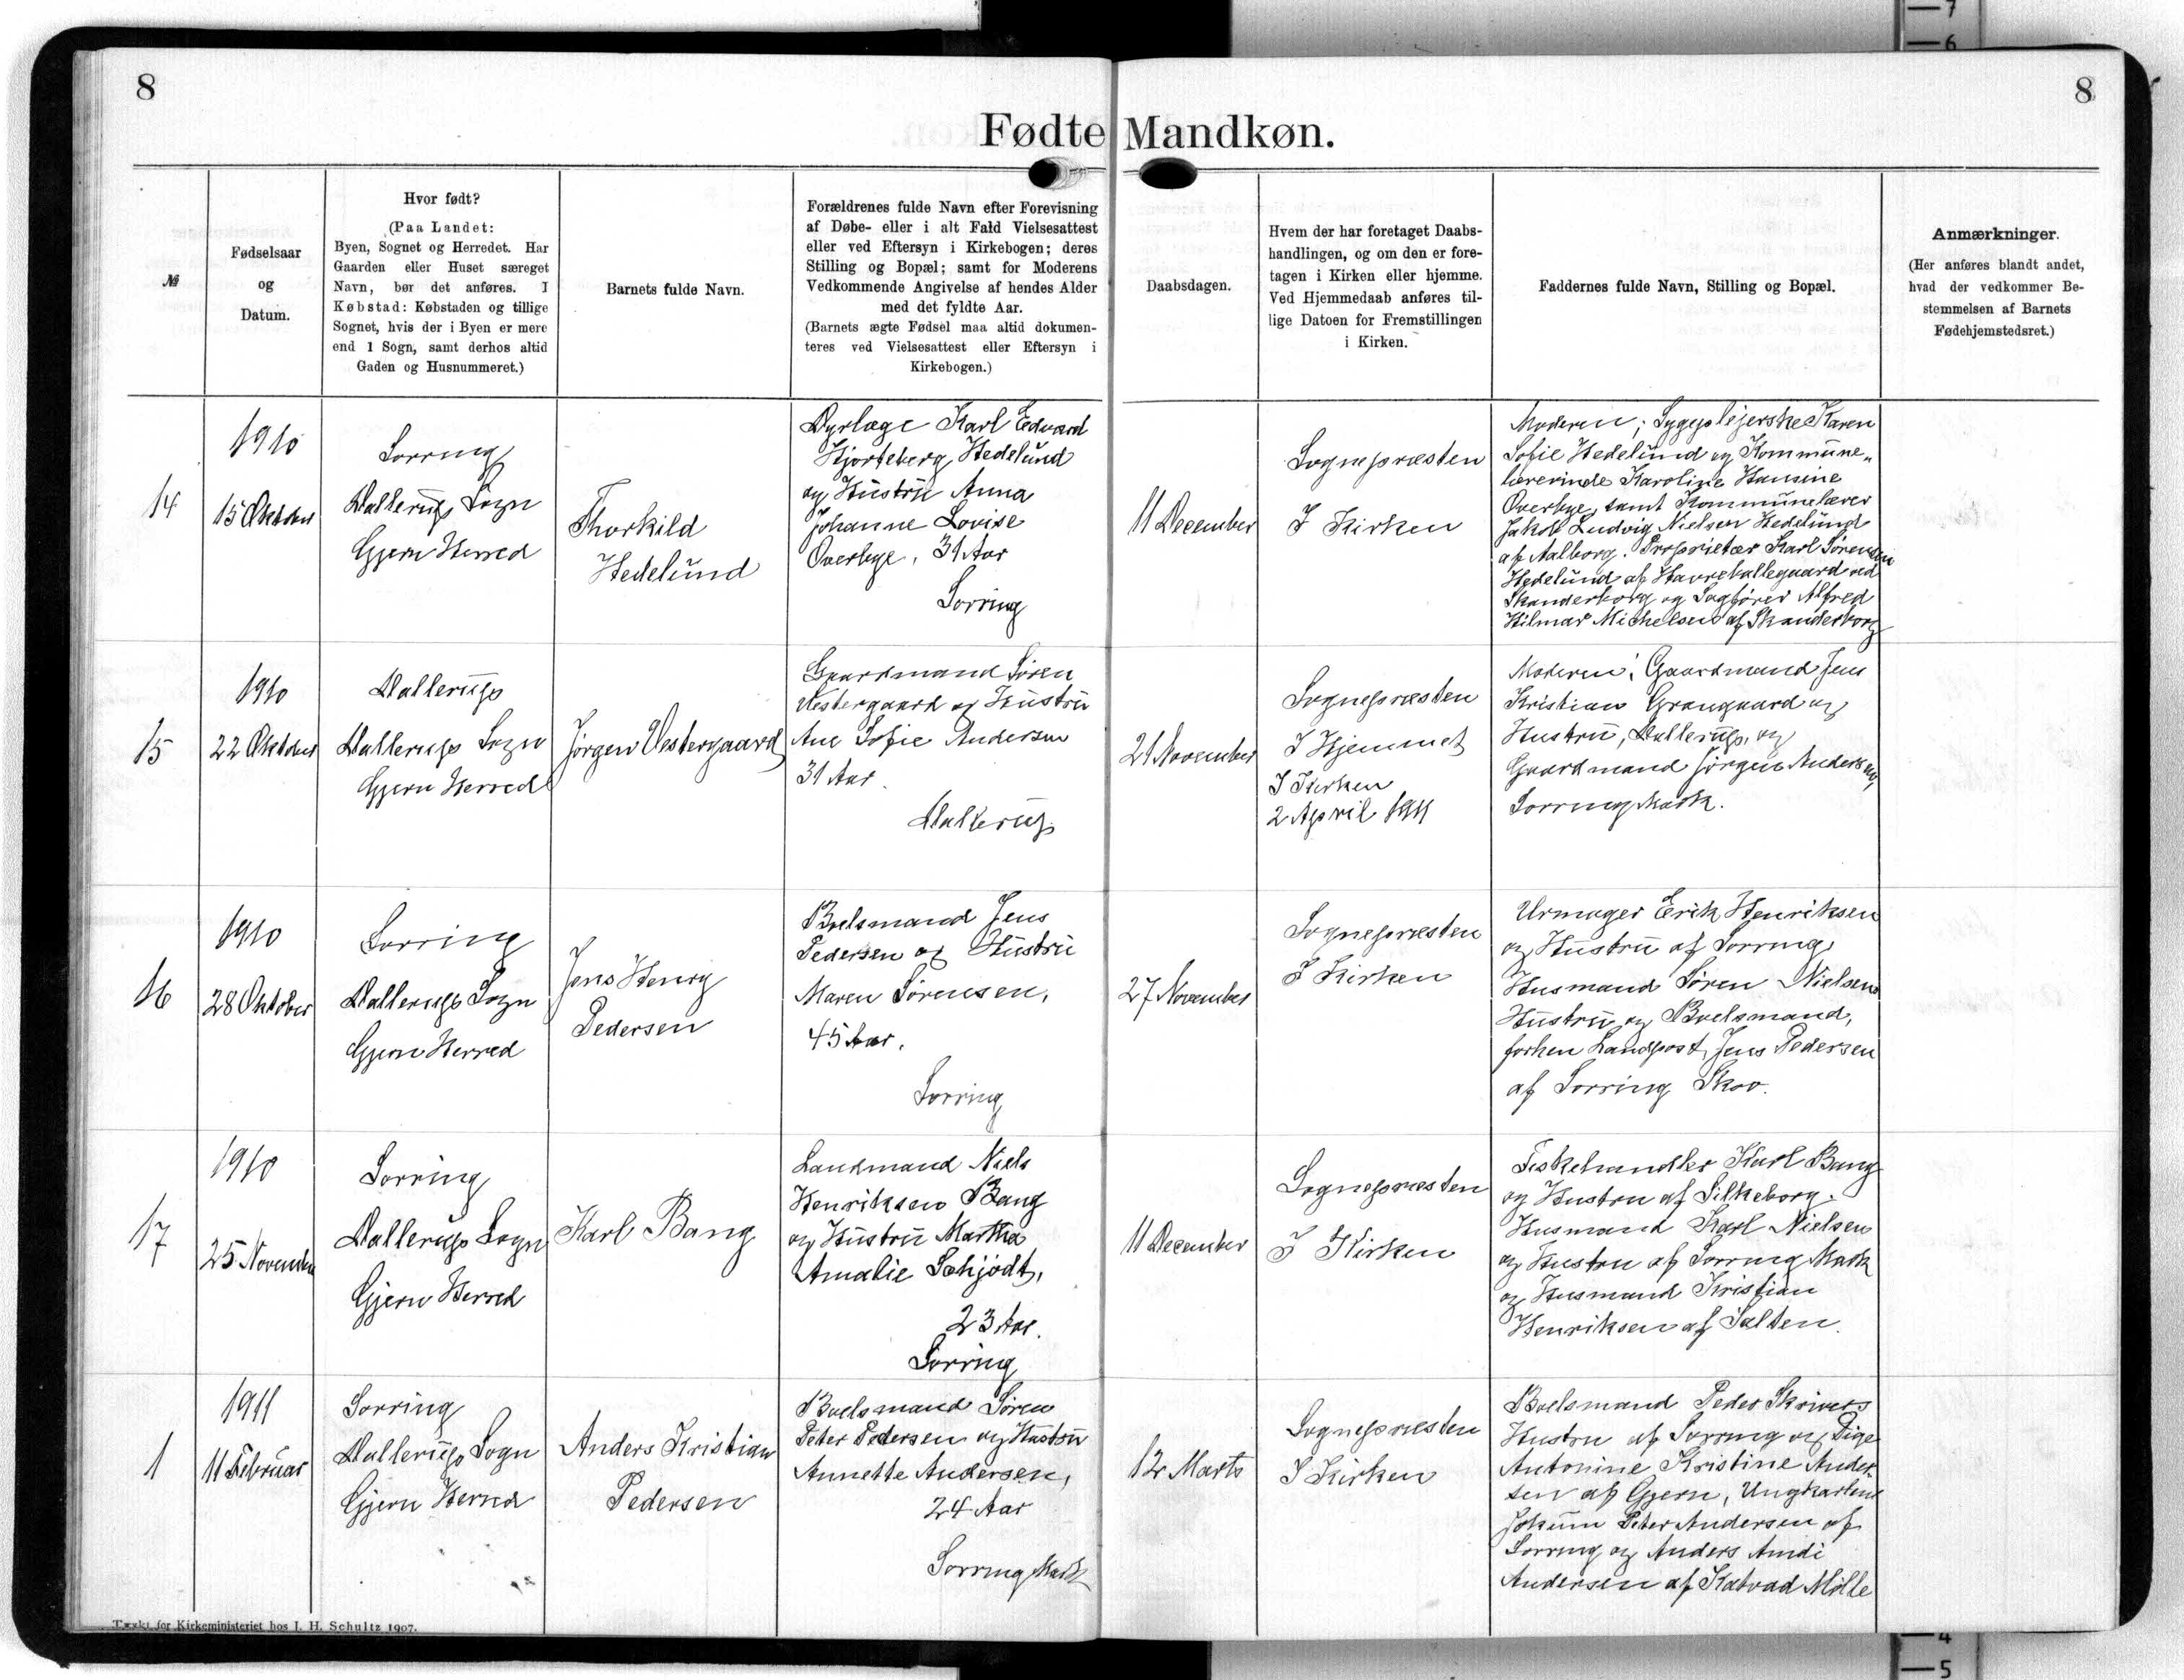 8
8
Fødte Mandkøn.
№
Fødselsaar
og
Datum.
Hvor født?
(Paa Landet:
Byen, Sognet og Herredet. Har
Gaarden eller Huset særeget
Navn, bør det anføres. I
Købstad: Købstaden og tillige
Sognet, hvis der i Byen er mere
end 1 Sogn, samt derhos altid
Gaden og Husnummeret.)
Barnets fulde Navn.
Forældrenes fulde Navn efter Forevisning
af Døbe- eller i alt Fald Vielsesattest
eller ved Eftersyn i Kirkebogen; deres
Stilling og Bopæl; samt for Moderens
Vedkommende Angivelse af hendes Alder
med det fyldte Aar.
(Barnets ægte Fødsel maa altid dokumen-
teres ved Vielsesattest eller Eftersyn i
Kirkebogen.)
Daabsdagen.
Hvem der har foretaget Daabs-
handlingen, og om den er fore-
tagen i Kirken eller hjemme.
Ved Hjemmedaab anføres til-
lige Datoen for Fremstillingen
i Kirken.
Faddernes fulde Navn, Stilling og Bopæl.
Anmærkninger.
(Her anføres blandt andet,
hvad der vedkommer Be-
stemmelsen af Barnets
Fødehjemstedsret.)
14
1910
15 Oktober
Sorring
Dallerup Sogn
Gjern Herred
Thorkild
Hedelund
Dyrlæge Karl Edvard
Hjorteberg Hedelund
og Hustru Anna
Johanne Lovise
Overbye, 31 Aar
Sorring
11 December
Sognepræsten
I Kirken
Moderen; Sygeplejerske Karen
Sofie Hedelund og Kommune-
lærerinde Karoline Hansine
Overbye, samt Kommunelærer
Jakob Ludvig Nielsen Hedelund
af Aalborg. Proprietær Karl Sørensen
Hedelund af Havreballegaard ved
Skanderborg og Sagfører Alfred
Hilmar Michelsen af Skanderborg
15
1910
22 Oktober
Dallerup
Dallerup Sogn
Gjern Herred
Jørgen Vestergaard
Gaardmand Søren
Vestergaard og Hustru
Ane Sofie Andersen
31 Aar.
Dallerup
21 November
Sognepræsten
I Hjemmet
I Kirken
2 April 1911
Moderen; Gaardmand Jens
Kristian Grangaard og
Hustru, Dallerup, og
Gaardmand Jørgen Andersen,
Sorring Mark.
16
1910
28 Oktober
Sorring
Dallerup Sogn
Gjern Herred
Jens Henry
Pedersen
Boelsmand Jens
Pedersen og Hustru
Maren Sørensen,
45 Aar.
Sorring
27 November
Sognepræsten
I Kirken
Urmager Erik Henriksen
og Hustru af Sorring
Husmand Søren Nielsens
Hustru og Boelsmand,
forhen Landpost, Jens Pedersen
af Sorring Skov.
17
1910
25 November
Sorring
Dallerup Sogn
Gjern Herred
Karl Bang
Landmand Niels
Henriksen Bang
og Hustru Martha
Amalie Schjødt,
23 Aar.
Sorring
11 December
Sognepræsten
I Kirken
Fiskehandler Karl Bang
og Hustru af Silkeborg.
Husmand Karl Nielsen
og Hustru af Sorring Mark
og Husmand Kristian
Henriksen af Salten.
1
1911
11 Februar
Sorring
Dallerup Sogn
Gjern Herred
Anders Kristian
Pedersen
Boelsmand Søren
Peter Pedersen og Hustru
Annette Andersen,
24 Aar
Sorring Mark
12 Marts
Sognepræsten
I Kirken
Boelsmand Peder Skrivers
Hustru af Sorring og Pige
Antonine Kristine Ander-
sen af Gjern, Ungkarlene
Jokum Peter Andersen af
Sorring og Anders
Andersen af Katvad Mølle
Trykt for Kirkeministeriet hos J. H. Schultz 1907.
7
6
4
5